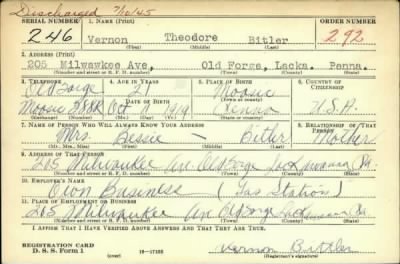 Discharged 7/10/45
SERIAL NUMBER 1. NAME (Print) ORDER NUMBER
246 Vernon Theodore Bitler 292
(First) (Middle) (Last)
2. ADDRESS (Print)
205 Milwawkee Ave, Old Forge, Lacka. Penna.
(Number and street or R. F. D. number) (Town) (County) (State)
3. TELEPHONE 4. AGE IN YEARS 5. PLACE OF BIRTH 6. COUNTRY OF CITIZENSHIP
Old Forge 21 Moosic
DATE OF BIRTH (Town or county)
Moosic Oct 1919 Penna U.S.A.
(Exchange) (Number) (Mo.) (Day) (Yr.) (State or country)
7. NAME OF PERSON WHO WILL ALWAYS KNOW YOUR ADDRESS 8. RELATIONSHIP OF THAT PERSON
Mrs Bessie — Bitler Mother
(Mr., Mrs., Miss) (First) (Middle) (Last)
9. ADDRESS OF THAT PERSON
205 Milwaukee Ave Old Forge Lackawanna Pa.
(Number and street or R. F. D. number) (Town) (County) (State)
10. EMPLOYER'S NAME
Own Business (Gas Station)
11. PLACE OF EMPLOYMENT OR BUSINESS
205 Milwaukee Ave Old Forge Lackawanna Pa.
(Number and street or R. F. D. number) (Town) (County) (State)
I AFFIRM THAT I HAVE VERIFIED ABOVE ANSWERS AND THAT THEY ARE TRUE.
REGISTRATION CARD
D. S. S. Form 1 (over) 16-17105 Vernon Bittler
(Registrant's signature)